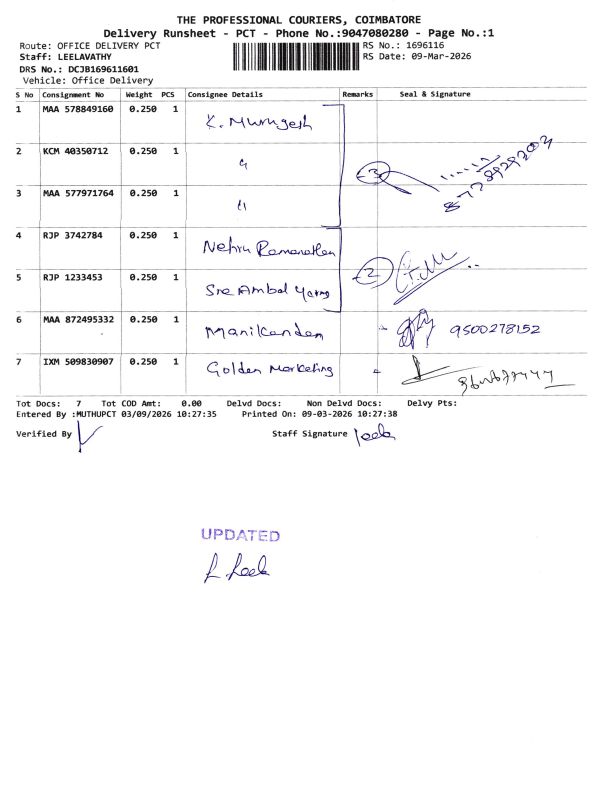 THE PROFESSIONAL COURIERS, COIMBATORE
Delivery Runsheet - PCT - Phone No.:9047080280 - Page No.:1
Route: OFFICE DELIVERY PCT RS No.: 1696116
Staff: LEELAVATHY RS Date: 09-Mar-2026
DRS No.: DCJB169611601
Vehicle: Office Delivery
S No Consignment No Weight PCS Consignee Details Remarks Seal & Signature
1 MAA 578849160 0.250 1 K. Murugesh
2 KCM 40350712 0.250 1 "
3 MAA 577971764 0.250 1 "
4 RJP 3742784 0.250 1 Nehru Ramanathan
5 RJP 1233453 0.250 1 Sre Ambal Yarns
6 MAA 872495332 0.250 1 Manikandan 9500278152
7 IXM 509830907 0.250 1 Golden Marketing
Tot Docs: 7 Tot COD Amt: 0.00 Delvd Docs: Non Delvd Docs: Delvy Pts:
Entered By :MUTHUPCT 03/09/2026 10:27:35 Printed On: 09-03-2026 10:27:38
Verified By Staff Signature Leela
UPDATED
L Leela